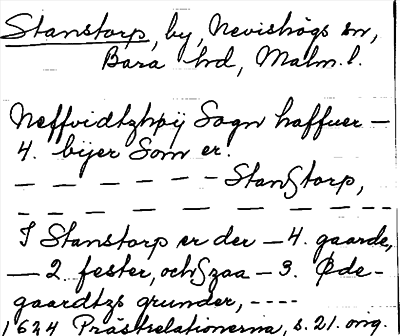 Stanstorp, by, Nevishögs sn,
Bara hd, Malm. l.
Neffvidtzhøÿ Sogn haffuer —
4. bÿer Som er.
— — — — — — StanStorp,
— — — — — — — — —
I Stanstorp er der — 4. gaarde,
— 2. fester, och Szaa — 3. Øde-
gaardtzs grunder, ----
1624 Prästrelationerna, s. 21. orig.